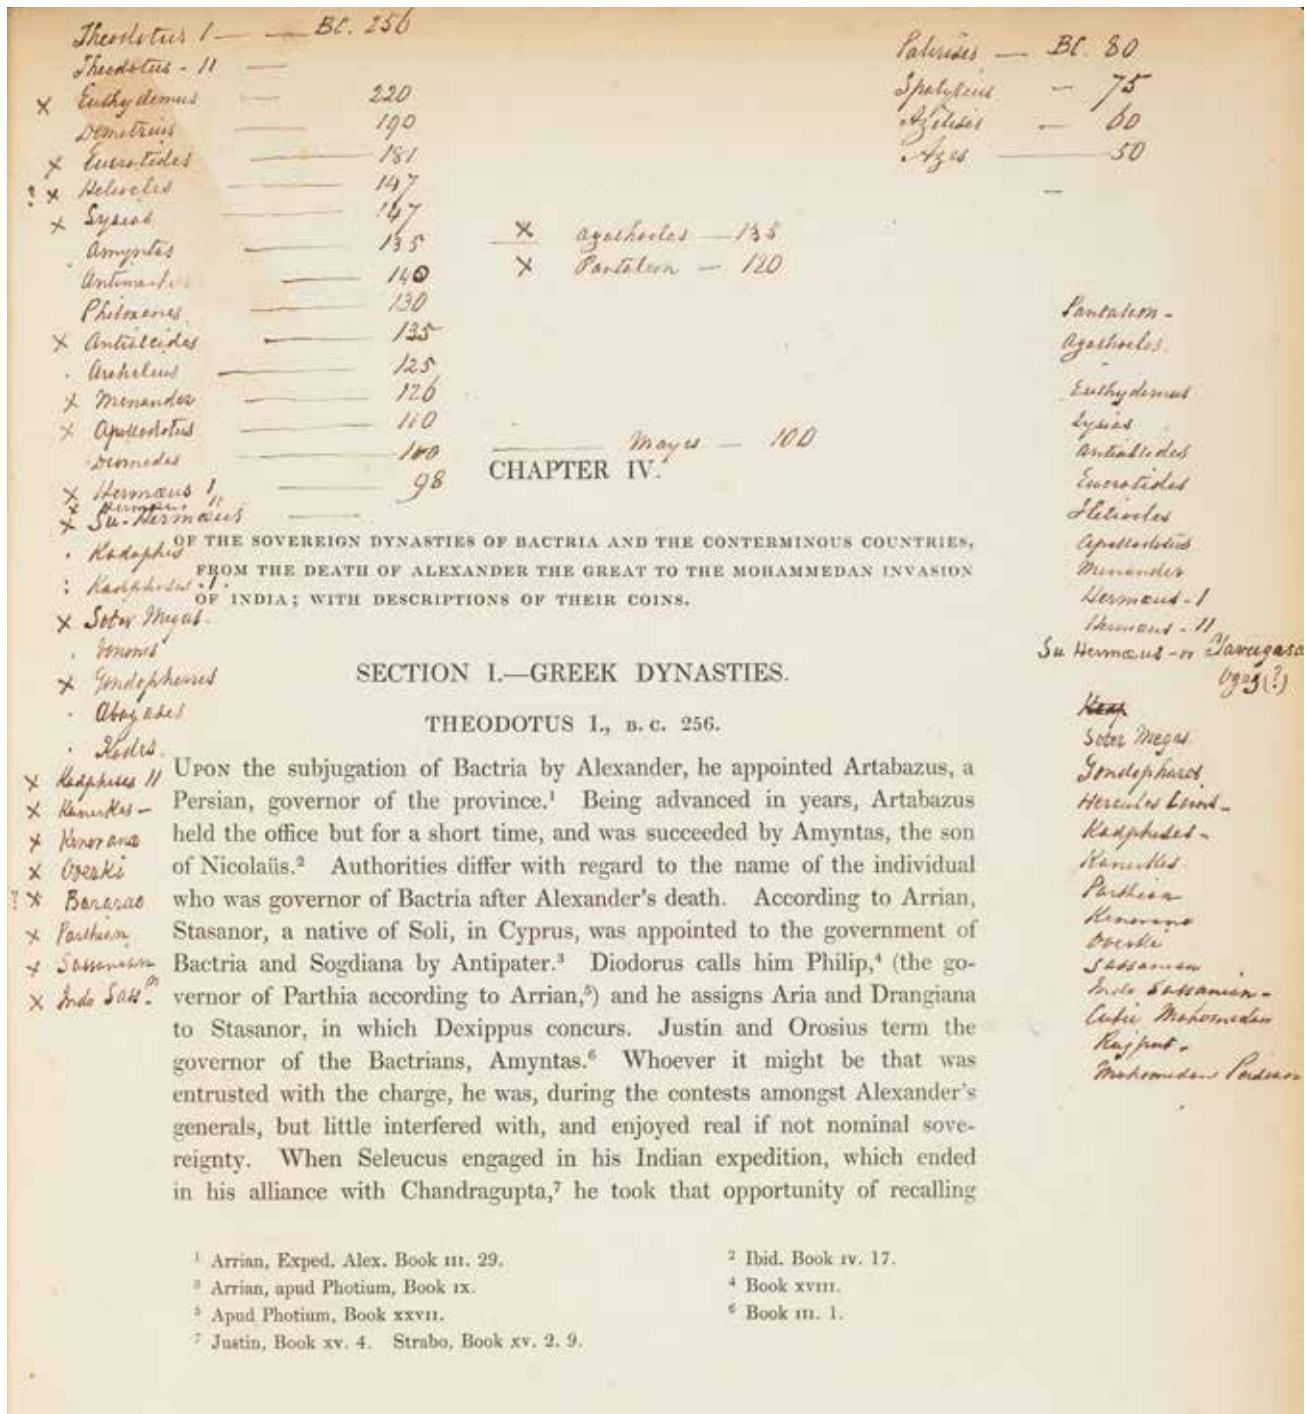 Theodotus I — — BC. 256
Theodotus - II —
x Euthydemus — 220
Demetrius — 190
x Eucratides — 181
? x Heliocles — 147
x Lysias — 147
Amyntas — 135
Antimach — 140
Philoxenes — 130
x Antialcides — 135
Archelius — 125
x Menander — 126
x Apollodotus — 110
Diomedes — 100
x Hermæus I — 98
x Hermæus II
x Su-Hermæus —
Kadaphis
Kadphises I.
x Soter Megas.
Vonones
x Gondophares
Abagases
Kodes.
x Kadphises II
x Kanerkes —
x Kenorano
x Ooerki
? x Bararao
x Parthian
x Sassanian
x Indo Sass.n
x Agathocles — 135
x Pantaleon — 120
— Mayes — 100
— BC. 80
— 75
Azilises — 60
Azes — 50
—
Pantaleon -
Agathocles.
Euthydemus
Lysias
Antialcides
Eucratides
Heliocles
Apollodotus
Menander
Hermæus - I
Hermæus - II
Su Hermæus - or
(?)
Soter Megas
Gondophares
Hercules
Kadphises -
Kanerkes.
Parthian
Kenorano
Ooerki
Sassanian
Indo Sassanian -
Cufic Mahomedan
Rajput -
Mahomedan
CHAPTER IV.
OF THE SOVEREIGN DYNASTIES OF BACTRIA AND THE CONTERMINOUS COUNTRIES,
FROM THE DEATH OF ALEXANDER THE GREAT TO THE MOHAMMEDAN INVASION
OF INDIA; WITH DESCRIPTIONS OF THEIR COINS.
SECTION I.—GREEK DYNASTIES.
THEODOTUS I., B. C. 256.
UPON the subjugation of Bactria by Alexander, he appointed Artabazus, a
Persian, governor of the province.¹ Being advanced in years, Artabazus
held the office but for a short time, and was succeeded by Amyntas, the son
of Nicolaüs.² Authorities differ with regard to the name of the individual
who was governor of Bactria after Alexander's death. According to Arrian,
Stasanor, a native of Soli, in Cyprus, was appointed to the government of
Bactria and Sogdiana by Antipater.³ Diodorus calls him Philip,⁴ (the go-
vernor of Parthia according to Arrian,⁵) and he assigns Aria and Drangiana
to Stasanor, in which Dexippus concurs. Justin and Orosius term the
governor of the Bactrians, Amyntas.⁶ Whoever it might be that was
entrusted with the charge, he was, during the contests amongst Alexander's
generals, but little interfered with, and enjoyed real if not nominal sove-
reignty. When Seleucus engaged in his Indian expedition, which ended
in his alliance with Chandragupta,⁷ he took that opportunity of recalling
¹ Arrian, Exped. Alex. Book III. 29.
² Ibid. Book IV. 17.
³ Arrian, apud Photium, Book IX.
⁴ Book XVIII.
⁵ Apud Photium, Book XXVII.
⁶ Book III. 1.
⁷ Justin, Book XV. 4. Strabo, Book XV. 2. 9.